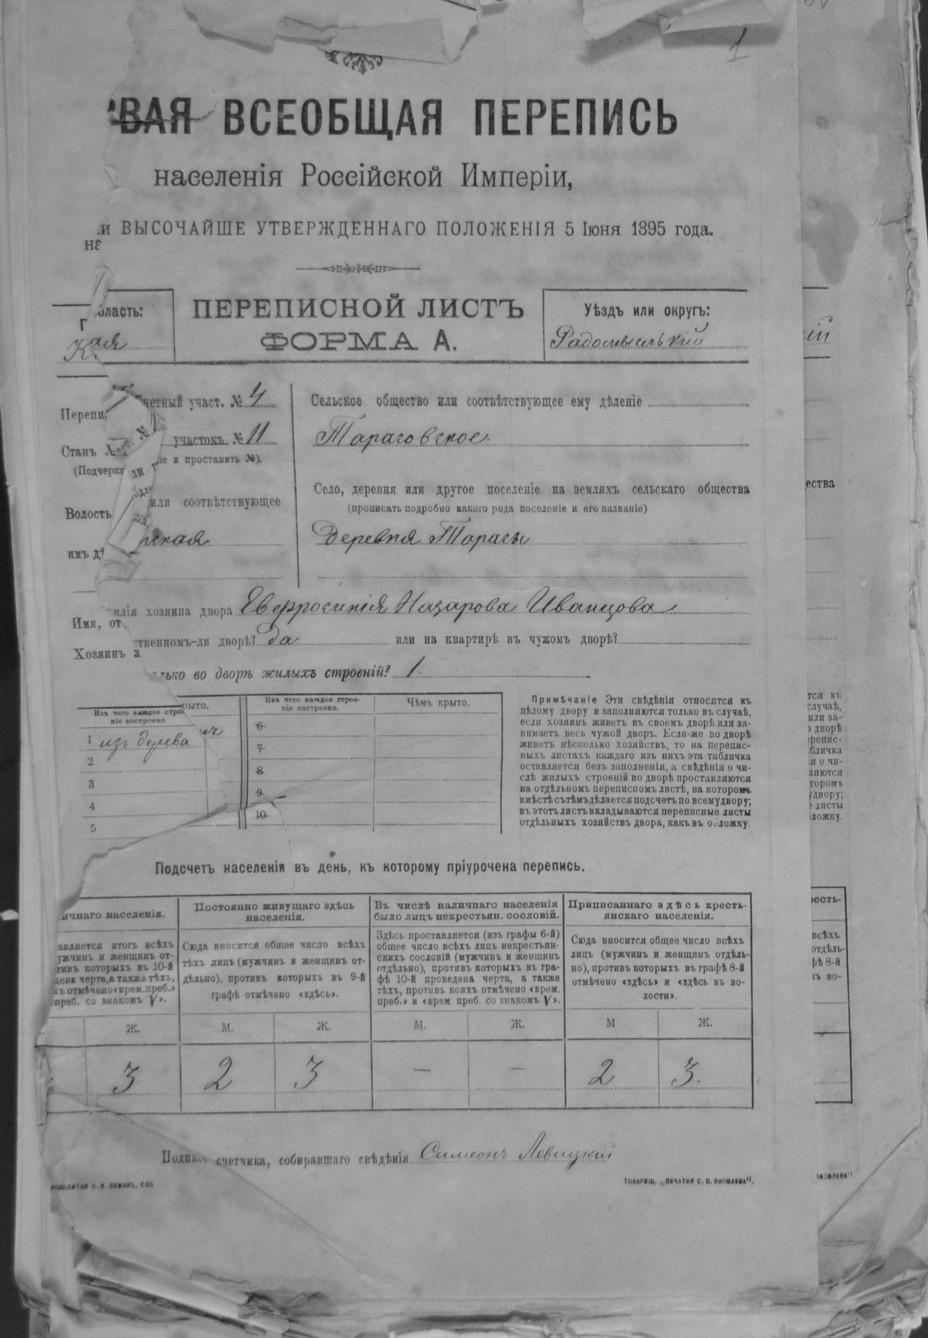 1
ВАЯ ВСЕОБЩАЯ ПЕРЕПИСЬ
населенія Россійской Имперіи,
ВЫСОЧАЙШЕ УТВЕРЖДЕННАГО ПОЛОЖЕНІЯ 5 Іюня 1895 года.
на
бласть:
ПЕРЕПИСНОЙ ЛИСТЪ
ФОРМА А.
Уѣздъ или округъ:
Радомысльскій
Перепи
четный участ. № 4
Станъ №
участокъ № 11
(Подчерк
е и проставить №).
Волость
или соотвѣтствующее
имъ дѣ
ская
Сельское общество или соотвѣтствующее ему дѣленіе
Тараговское
Село, деревня или другое поселеніе на земляхъ сельскаго общества
(прописать подробно какого рода поселеніе и его названіе)
Деревня Тараги
Имя, от
илія хозяина двора Евфросинія Назарова Иванцова
Хозяинъ
твенномъ-ли дворѣ? Да или на квартирѣ въ чужомъ дворѣ?
лько во дворѣ жилыхъ строеній? 1.
Изъ чего каждое строе
ніе построено
рыто.
Изъ чего каждое строе-
ніе построено.
Чѣмъ крыто.
1 изъ дерева
2
3
4
5
6
7
8
9
10
Примѣчаніе Эти свѣдѣнія относятся къ
цѣлому двору и заполняются только въ случаѣ,
если хозяинъ живетъ въ своемъ дворѣ или за-
нимаетъ весь чужой дворъ. Если-же во дворѣ
живетъ нѣсколько хозяйствъ, то на перепис-
ныхъ листахъ каждаго изъ нихъ эта табличка
оставляется безъ заполненія, а свѣдѣнія о чи-
слѣ жилыхъ строеній во дворѣ проставляются
на отдѣльномъ переписномъ листѣ, на которомъ
вмѣстѣ съ тѣмъ дѣлается подсчетъ по всему двору;
въ этотъ листъ вкладываются переписные листы
отдѣльныхъ хозяйствъ двора, какъ въ обложку.
Подсчетъ населенія въ день, къ которому пріурочена перепись.
ичнаго населенія.
авляется итогъ всѣхъ
ужчинъ и женщинъ от-
тивъ которыхъ въ 10-й
дена черта, а также тѣхъ,
хъ отмѣчено «врем. преб.»
преб. со знакомъ V».
Ж.
3
Постоянно живущаго здѣсь
населенія.
Сюда вносится общее число всѣхъ
тѣхъ лицъ (мужчинъ и женщинъ от-
дѣльно), противъ которыхъ въ 9-й
графѣ отмѣчено «здѣсь».
М. Ж.
2 3
Въ числѣ наличнаго населенія
было лицъ некрестьян. сословій.
Здѣсь проставляется (изъ графы 6-й)
общее число всѣхъ лицъ некрестьян-
скихъ сословій (мужчинъ и женщинъ
отдѣльно), противъ которыхъ въ гра-
фѣ 10-й проведена черта, а также
тѣхъ, противъ коихъ отмѣчено «врем.
преб.» и «врем преб. со знакомъ V».
М. Ж.
— —
Приписаннаго здѣсь кресть-
янскаго населенія.
Сюда вносится общее число всѣхъ
лицъ (мужчинъ и женщинъ отдѣль-
но), противъ которыхъ въ графѣ 8-й
отмѣчено «здѣсь» и «здѣсь къ во-
лости».
М Ж.
2 3.
Подпись счетчика, собиравшаго свѣдѣнія Симеонъ Левицкій
ТОВАРИЩ. „ПЕЧАТНЯ С. П. ЯКОВЛЕВА".